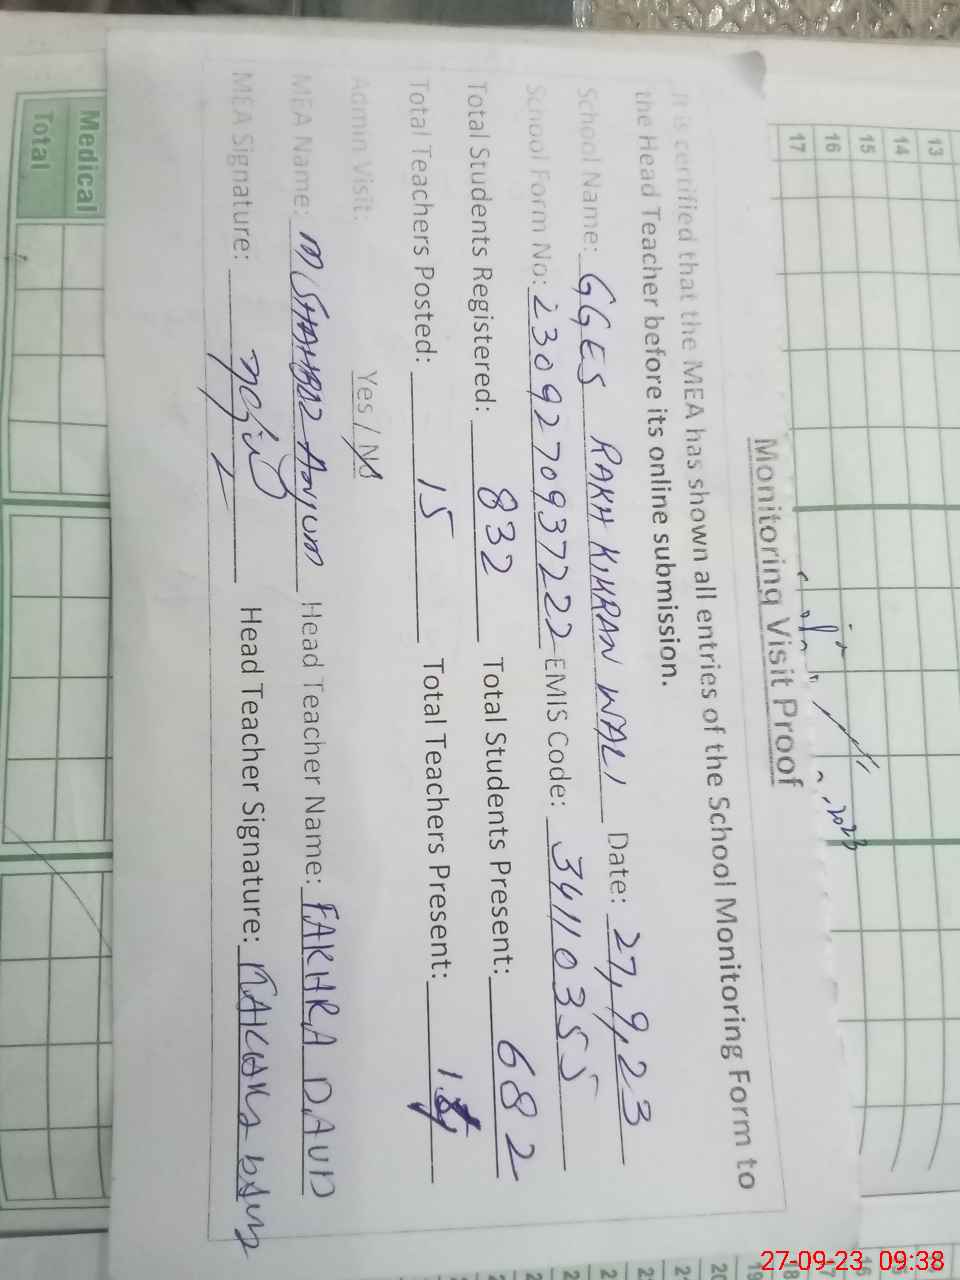 Monitoring Visit Proof
It is certified that the MEA has shown all entries of the School Monitoring Form to
the Head Teacher before its online submission.
School Name: GGES RAKH KIKRAN WALI Date: 27,9,23
School Form No: 2309270937222 EMIS Code: 34110355
Total Students Registered: 832 Total Students Present: 682
Total Teachers Posted: 15 Total Teachers Present:
Admin Visit: Yes / No
MEA Name: M SHAHBAZ Anjum Head Teacher Name: FAKHRA DAUD
MEA Signature: Head Teacher Signature:
Medical
Total
13
14
15
16
17
27-09-23 09:38